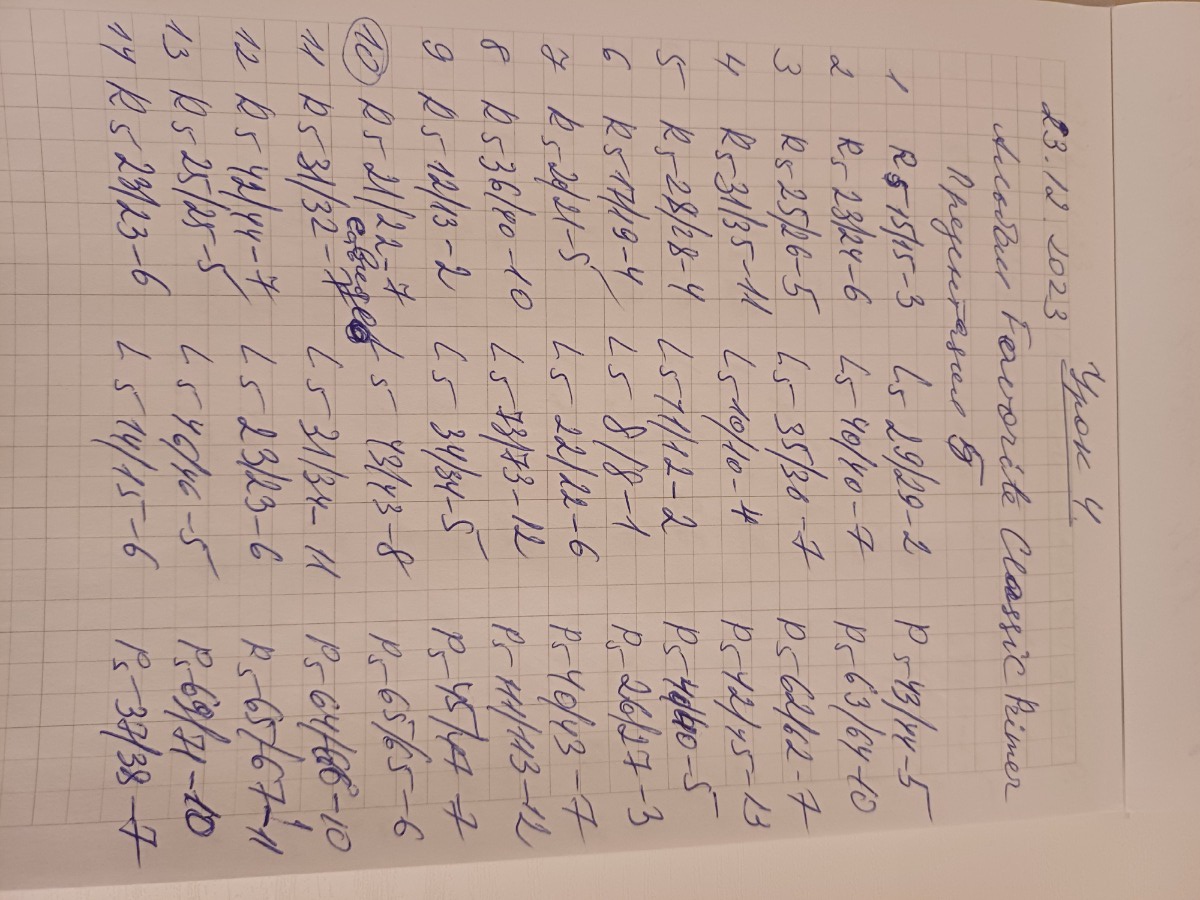 Урок 4
23.12.2023
Альбом Favorite Classic Primer
Презентация 5
1 R5-15/15-3 L5 29/29-2 P5-43/44-5
2 R5-23/24-6 L5-40/40-7 P5-63/64-10
3 R5 25/26-5 L5-35/36-7 P5-62/62-7
4 R5-31/35-11 L5-10/10-4 P5-42/45-13
5 R5-28/28-4 L5-11/12-2 P5-40/40-5
6 R5-17/19-4 L5 8/8-1 P5-26/27-3
7 R5-21/21-5 L5 22/22-6 P5-40/43-7
8 R5 36/40-10 L5-73/73-12 P5-111/113-12
9 R5 12/13-2 L5 34/34-5 P5-45/47-7
10 R5 21/22-7 L5 43/43-8 P5-65/65-6
11 R5 31/32-7 L5-31/34-11 P5-64/66-10
12 R5 42/44-7 L5 23/23-6 P5-65/67-11
13 R5 25/25-5 L5 46/46-5 P5-69/71-10
14 R5 23/23-6 L5 14/15-6 P5-37/38-7